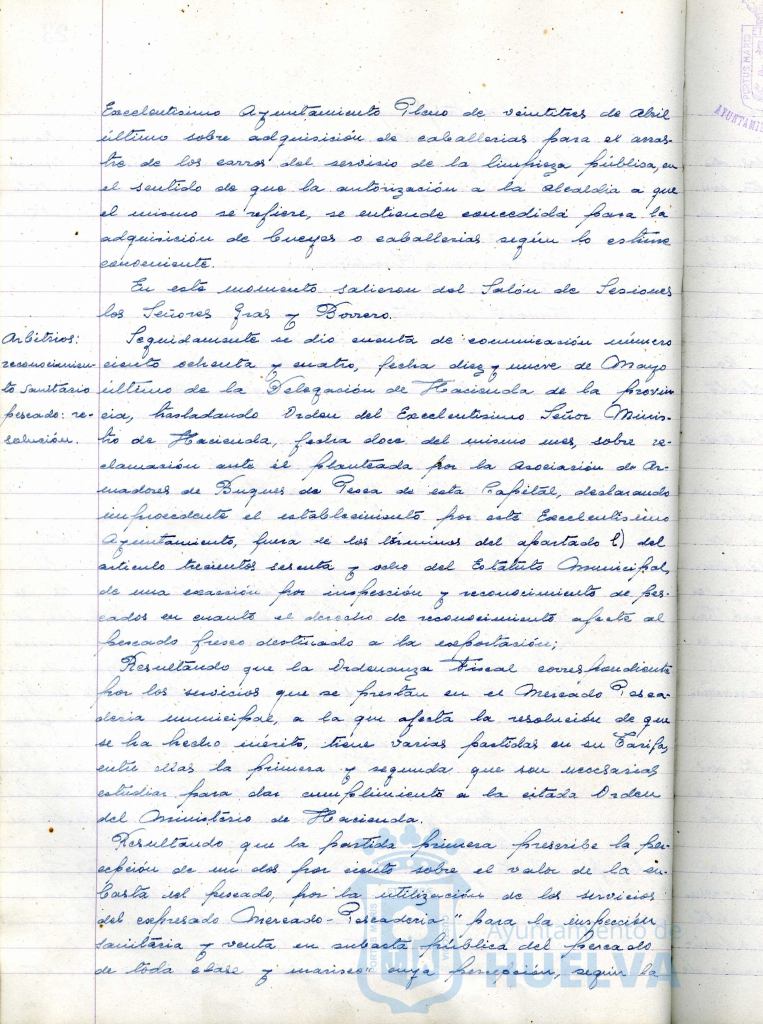 Excelentisimo Ayuntamiento Pleno de veintitres de Abril
último sobre adquisición de caballerias para el arras-
tre de los carros del servicio de la limpieza pública, en
el sentido de que la autorización a la Alcaldia a que
el mismo se refiere, se entiende concedida para la
adquisición de bueyes o caballerias según lo estime
conveniente.
En este momento salieron del Salón de Sesiones
los Señores Gras y Borrero.
Arbitrios:
reconocimien-
to sanitario
pescado: re-
solución.
Seguidamente se dio cuenta de comunicación número
ciento ochenta y cuatro, fecha diez y nueve de Mayo
último de la Delegación de Hacienda de la provin-
cia, trasladando Orden del Excelentisimo Señor Minis-
tro de Hacienda, fecha doce del mismo mes, sobre re-
clamación ante él planteada por la Asociación de Ar-
madores de Buques de Pesca de esta Capital, declarando
improcedente el establecimiento por este Excelentisimo
Ayuntamiento, fuera de los términos del apartado l) del
articulo trecientos sesenta y ocho del Estatuto Municipal,
de una exacción por inspección y reconocimiento de pes-
cados en cuanto el derecho de reconocimiento afecte al
pescado fresco destinado a la exportación;
Resultando que la Ordenanza Fiscal correspondiente
por los servicios que se prestan en el Mercado Pesca-
deria municipal, a la que afecta la resolución de que
se ha hecho mérito, tiene varias partidas en su Tarifa,
entre ellas la primera y segunda que son necesarias
estudiar para dar cumplimiento a la citada Orden
del Ministerio de Hacienda.
Resultando que la partida primera prescribe la per-
cepción de un dos por ciento sobre el valor de la su-
basta del pescado, por la utilización de los servicios
del expresado Mercado-Pescaderia "para la inspección
sanitaria y venta en subasta pública del pescado
de toda clase y marisco" cuya percepción, según la
Ayuntamiento de
HUELVA
PORTUS MARIS